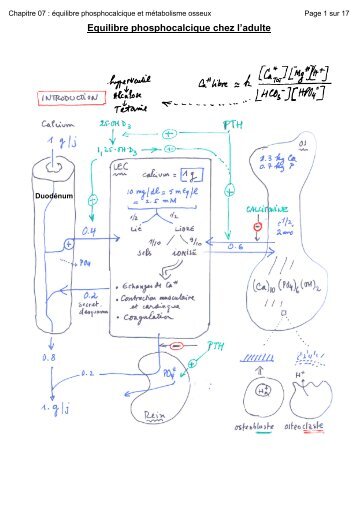 Chapitre 07 : équilibre phosphocalcique et métabolisme osseux
Page 1 sur 17
Equilibre phosphocalcique chez l'adulte
INTRODUCTION
hyperventil
→ Alcalose
→ Tétanie
Ca⁺⁺ libre ≃ k [Ca Tot] [Mg⁺⁺] [H⁺]
[HCO₃⁻] [HPO₄⁻]
Calcium
1 g/j
25-OH D₃
1,25-OH D₃
PTH
Duodénum
LEC
calcium = 1 g
10 mg/dl = 5 mEq/l
= 2.5 mM
1/2
1/2
Lié
LIBRE
1/10
9/10
sels
IONISÉ
• Echanges de Ca⁺⁺
• Contraction musculaire
et cardiaque
• Coagulation
0.4
PO₄
0.2
secret.
0.8
0.2
1. g/j
PO₄
Rein
PTH
0.6
CALCITONINE
OS
1.3 kg Ca
0.7 kg P
(Ca)₁₀ (PO₄)₆ (OH)₂
H⁺
ostéoblaste
ostéoclaste